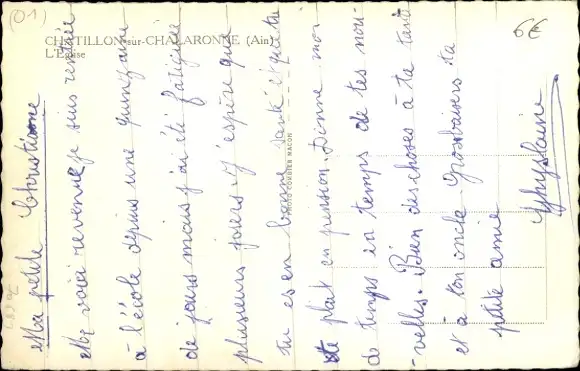 (01)
6€
CHATILLON-sur-CHALARONNE (Ain)
L'Eglise
PHOTO COMBIER MACON
Ma petite Christiane
Me voici revenue je suis rentrée
à l'école depuis une quinzaine
de jours mais j'ai été fatiguée
plusieurs jours. J'espère que
tu es en bonne santé et que tu
te plait en pension. Donne moi
de temps en temps de tes nou-
-velles. Bien des choses à ta tante
et à ton oncle Gros baisers ta
petite amie
Ghyslaine